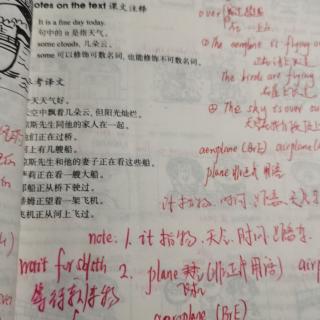 otes on the text 课文注释
It is a fine day today.
句中的 it 是指天气。
some clouds, 几朵云。
some 可以修饰可数名词, 也能修饰不可数名词。
考译文
天天气好。
空中飘着几朵云, 但阳光灿烂。
斯先生同他的家人在一起。
们正在过桥。
上有几艘船。
斯先生和他的妻子正在看这些船。
莉正在看一艘大船。
船正从桥下驶过。
姆正望着一架飞机。
机正从河上飞过。
over
① The aeroplane is flying ov
The birds are flying
② The sky is over ou
aeroplane (BrE) airplane(
plane 非正式用语
it 指物, 天气, 时间, 距离
note: 1. it 指物, 天气, 时间, 距离等.
wait for sb/sth
等待某人某物
2. plane (非正式用语) air
飞机
aeroplane (BrE)